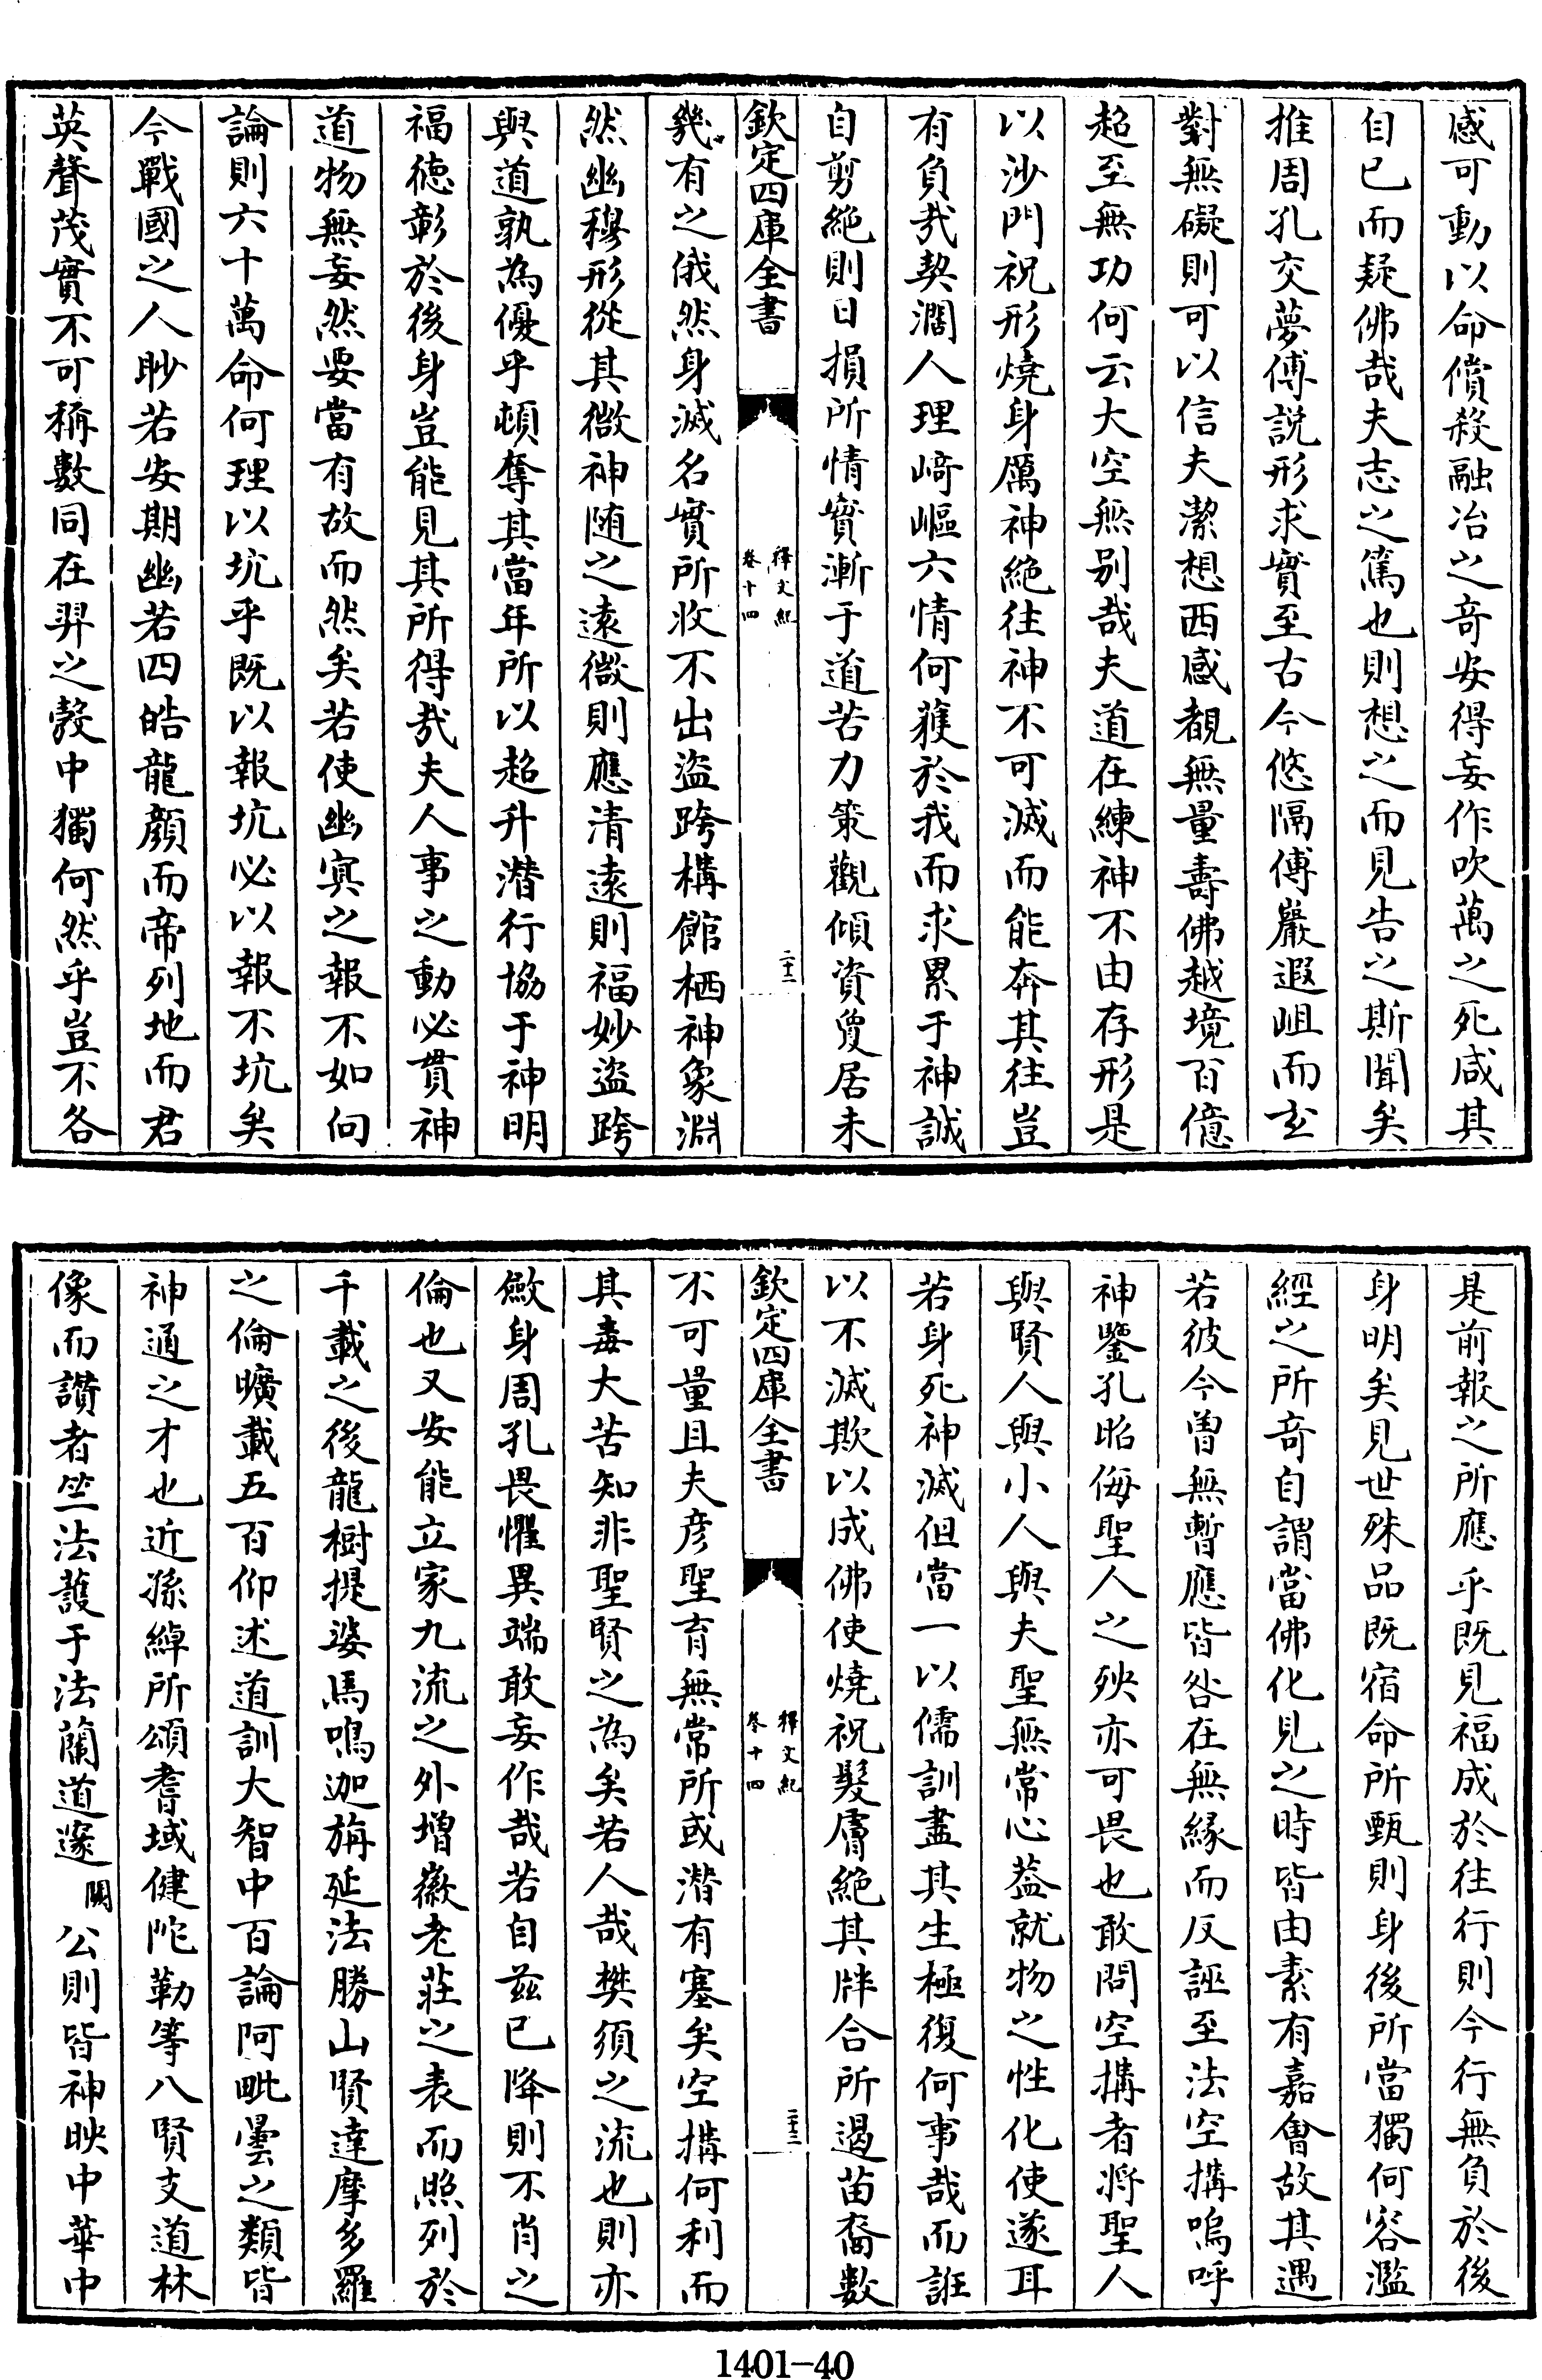 感可動以命償殺融冶之奇安得妄作吹萬之死咸其
自已而疑佛哉夫志之篤也則想之而見告之斯聞矣
推周孔交夢傅説形求實至古今悠隔傅巖遐岨而玄
對無礙則可以信夫潔想西感覩無量壽佛越境百億
超至無功何云大空無别哉夫道在練神不由存形是
以沙門祝形燒身厲神絶往神不可滅而能奔其往豈
有負哉契濶人理崎嶇六情何獲於我而求累于神誠
自剪絶則日損所情實漸于道苦力策觀傾資夐居未
欽定四庫全書
釋文紀
卷十四
二十二
幾有之俄然身滅名實所收不出盜跨構館栖神象淵
然幽穆形從其微神随之遠微則應清遠則福妙盜跨
與道孰為優乎頓奪其當年所以超升潜行協于神明
福徳彰於後身豈能見其所得哉夫人事之動必貫神
道物無妄然要當有故而然矣若使幽冥之報不如向
論則六十萬命何理以坑乎既以報坑必以報不坑矣
今戰國之人眇若安期幽若四皓龍顔而帝列地而君
英聲茂實不可稱數同在羿之彀中獨何然乎豈不各
是前報之所應乎既見福成於往行則今行無負於後
身明矣見世殊品既宿命所甄則身後所當獨何容濫
經之所奇自謂當佛化見之時皆由素有嘉會故其遇
若彼今曽無暫應皆咎在無縁而反誣至法空搆嗚呼
神鑒孔昭侮聖人之殃亦可畏也敢問空搆者將聖人
與賢人與小人與夫聖無常心蓋就物之性化使遂耳
若身死神滅但當一以儒訓盡其生極復何事哉而誑
以不滅欺以成佛使燒祝髮膚絶其牉合所遏苗裔數
欽定四庫全書
釋文紀
卷十四
二十三
不可量且夫彦聖育無常所或潜有塞矣空搆何利而
其毒大苦知非聖賢之為矣若人哉樊須之流也則亦
斂身周孔畏懼異端敢妄作哉若自兹已降則不肖之
倫也又安能立家九流之外増徽老莊之表而照列於
千載之後龍樹提婆馬鳴迦旃延法勝山賢達摩多羅
之倫曠載五百仰述道訓大智中百論阿毗曇之類皆
神通之才也近孫綽所頌耆域健陀勒等八賢支道林
像而讃者竺法護于法蘭道邃闕公則皆神映中華中
1401-40